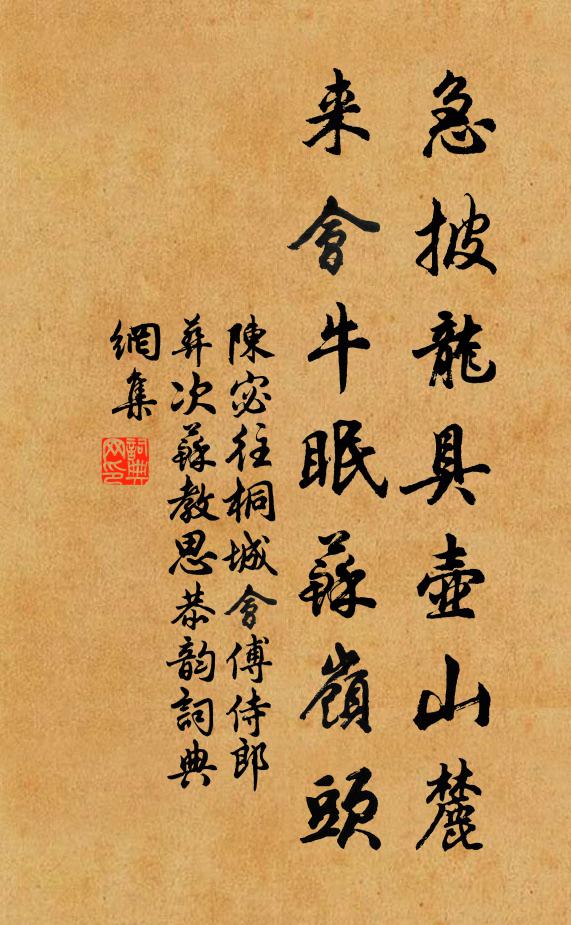 急披龍具壺山麓
来會牛眠蘇嶺頭
陳宓往桐城會傅侍郎
葬次蘇教思恭韵詞典
網集
詞典网印